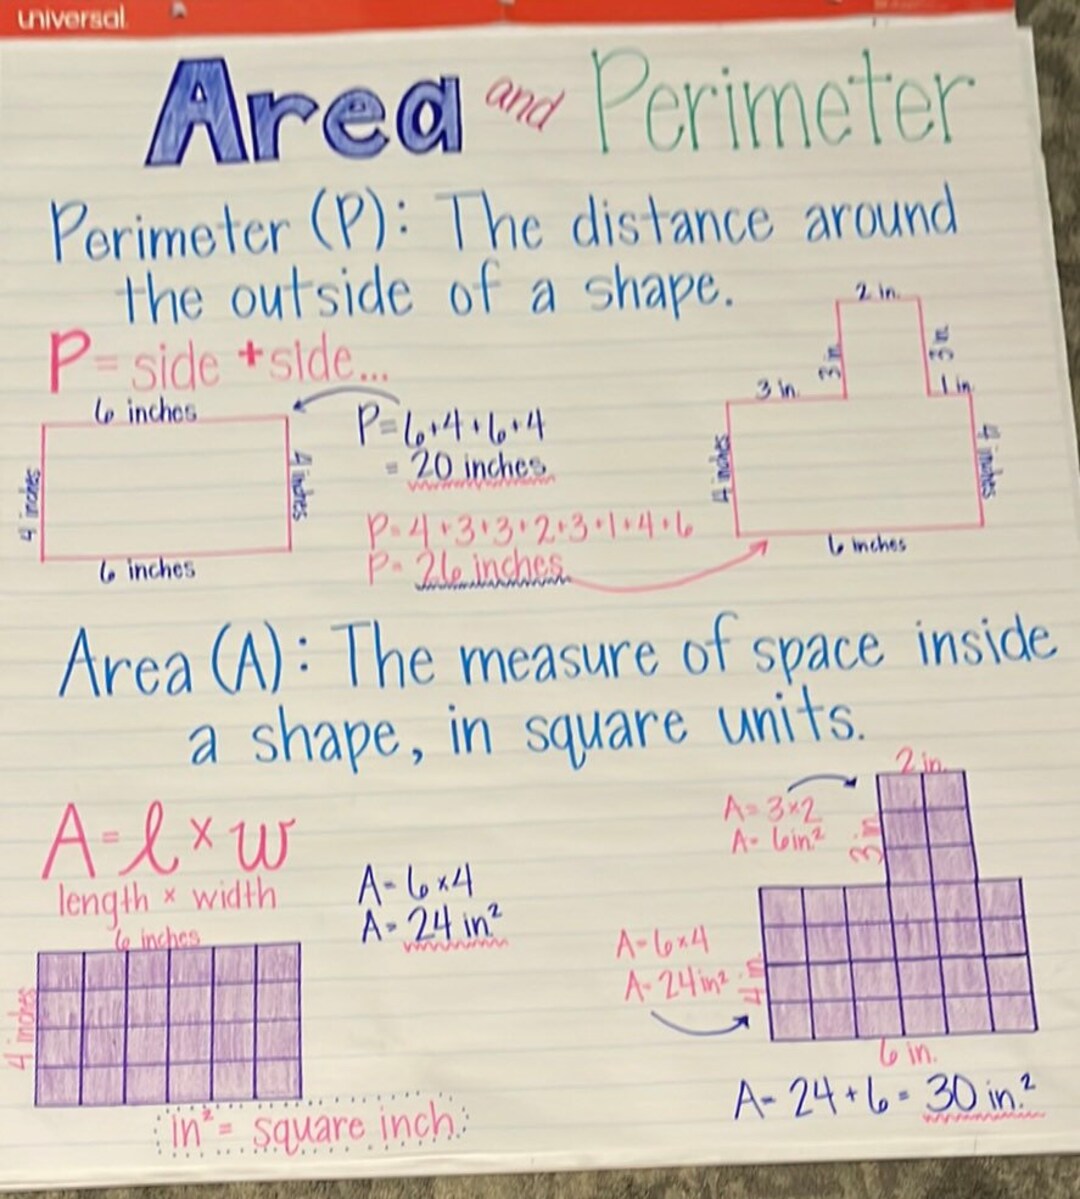 universal
Area and Perimeter
Perimeter (P): The distance around
the outside of a shape.
P= side + side...
6 inches
4 inches
4 inches
6 inches
P= 6+4+6+4
= 20 inches
P= 4+3+3+2+3+1+4+6
P= 26 inches
2 in.
3 in.
3 in.
3 in.
1 in.
4 inches
4 inches
6 inches
Area (A): The measure of space inside
a shape, in square units.
A= l × w
length × width
6 inches
4 inches
A= 6×4
A= 24 in²
in² = square inch
2 in.
A= 3×2
A= 6in²
3 in
A= 6×4
A= 24in²
4 in
6 in.
A= 24+6= 30 in.²